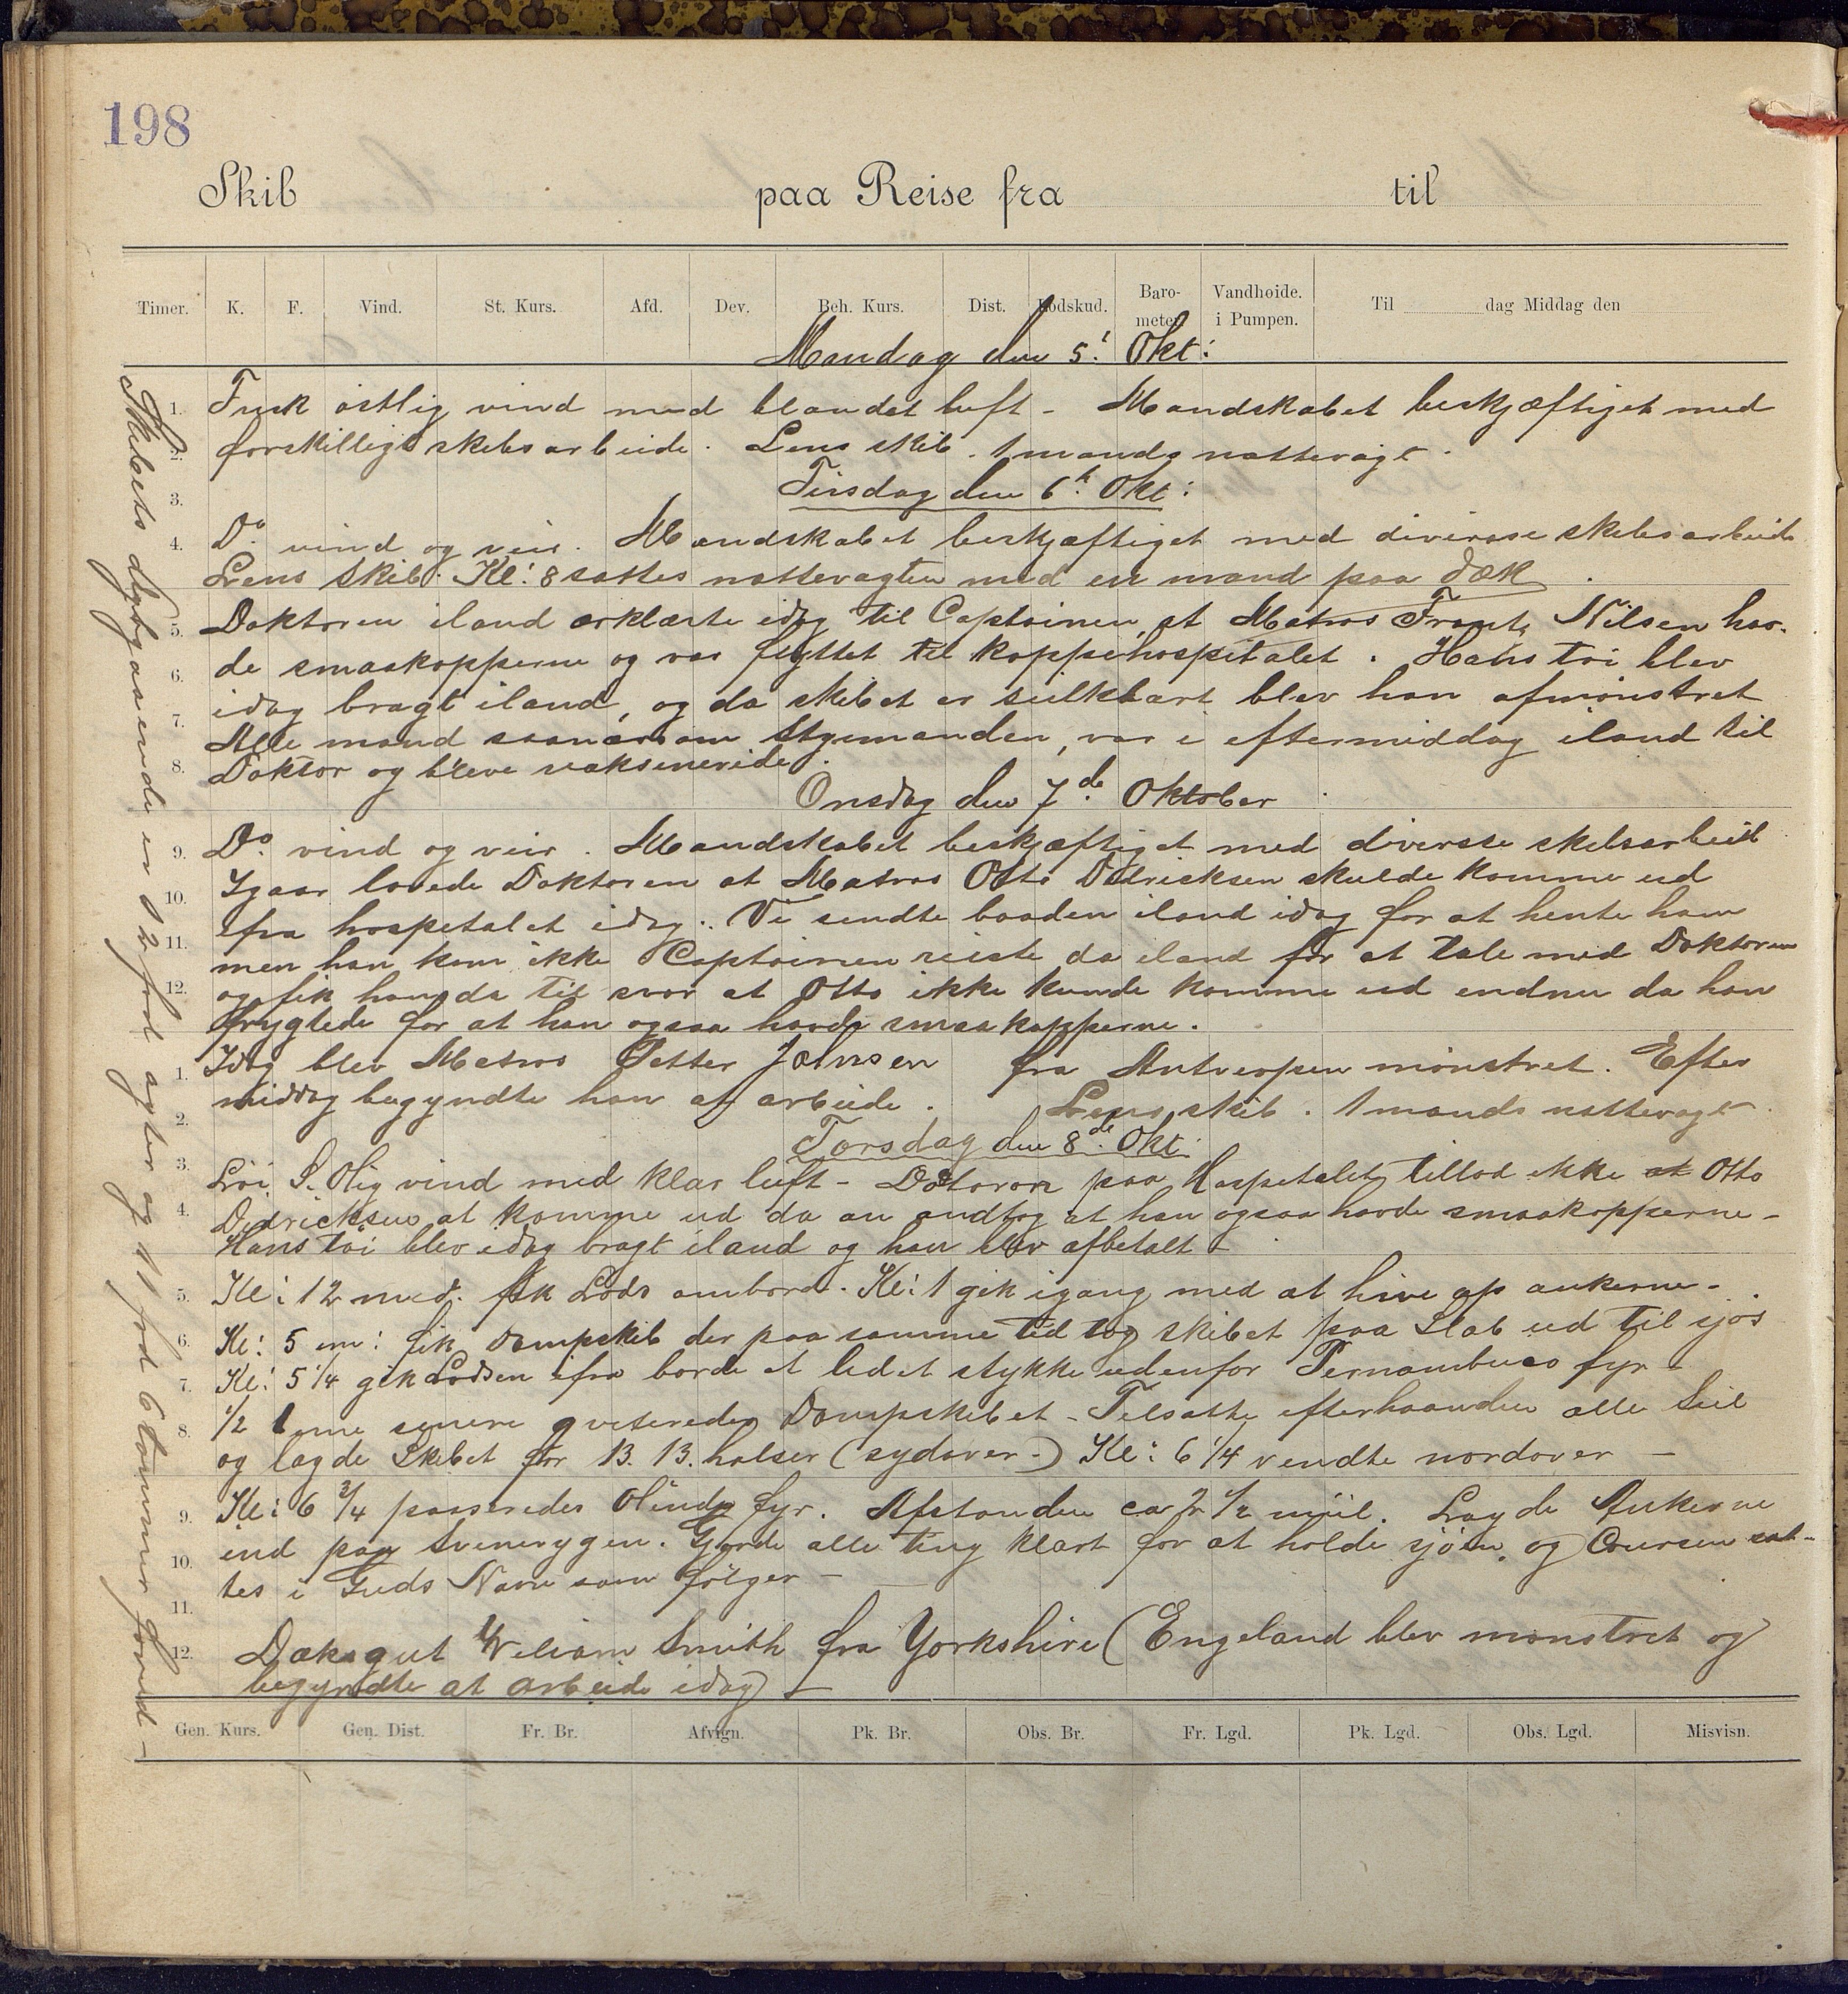 198
Skib paa Reise fra til
Timer. K. F. Vind. St. Kurs. Afd. Dev. Beh. Kurs. Dist. Lodskud. Baro-meter Vandhoide. i Pumpen. Til dag Middag den
Mandag den 5! Okt:
1. Frisk ostlig vind med blandet luft - Mandskabet beskjæftiget med
2. forskilligt skibsarbeide. Lens skib. 1 mands nattevagt.
3. Tirsdag den 6te Okt:
4. Do vind og veir. Mandskabet beskjæftiget med diverse skibsarbeide
Lens skib. Kl: 8 sattes nattevagten med en mand paa dæk.
5. Doktoren iland ærklærte idag til Captainen, at Matros Frants Nilsen hav-
6. de smaakopperne og var flyttet til koppehospitalet. Hans töi blev
7. idag bragt iland, og da skibet er seilklart blev han afmönstret
Alle mand saanærsom Styrmanden, var i eftermiddag iland til
8. Doktor og bleve vaksineride.
Onsdag den 7de Oktober
9. Do vind og veir. Mandskabet beskjæftiget med diversse skibsarbeid
10. Igaar lovede Doktoren at Matros Otto Didricksen skulde komme ud
11. ifra hospetalet idag. Vi sendte baaden iland idag for at hente ham
men han kom ikke Captainen reiste da iland for at tale med Doktoren
12. og fik han da til svar at Otto ikke kunde komme ud endnu da han
frygtede for at han ogsaa havde smaakopperne.
1. Idag blev Matros Petter Johnsen fra Antverpen mönstret. Efter
2. middag begyndte han at arbeide. Lens skib. 1 mands nattevagt.
Torsdag den 8de Okt:
3. Löi S. Ölig vind med klar luft - Dotoren paa Hospetalet tillod ikke at Otto
4. Didricksen at komme ud da an andtog at han ogsaa havde smaakopperne -
Hans töi blev idag bragt iland og han blev afbetalt -
5. Kl: 12 med. fik Lods ombord. Kl: 1 gik igang med at hive op ankerne -
6. Kl: 5 em: fik Dampskib der paa samme tid tog skibet paa Slæb ud til sjös
7. Kl: 5 1/4 gik Lodsen ifra borde et lidet stykke udenfor Pernambuco fyr -
8. 1/2 time senere qviteredes Dampskibet - Tilsatte efterhaanden alle Seil
og lagde Skibet for B. B. halser (sydover -) Kl: 6 1/4 vendte nordover -
9. Kl: 6 3/4 passeredes Olinda fyr. Afstanden ca 2 1/2 miil. Lagde Ankerne
10. ind paa Svinerygen. Gjorde alle ting klart for at holde sjöen, og Coursen sat-
11. tes i Guds Navn som fölger -
12. Dæksgut William Smith fra Yorkshire (Engeland blev mönstret og
begyndte at arbeide idag) -
Skibets dybgaaende er 12 fod agter og 11 fod 6 tommer forud -
Gen. Kurs. Gen. Dist. Fr. Br. Afvign. Pk. Br. Obs. Br. Fr. Lgd. Pk. Lgd. Obs. Lgd. Misvisn.